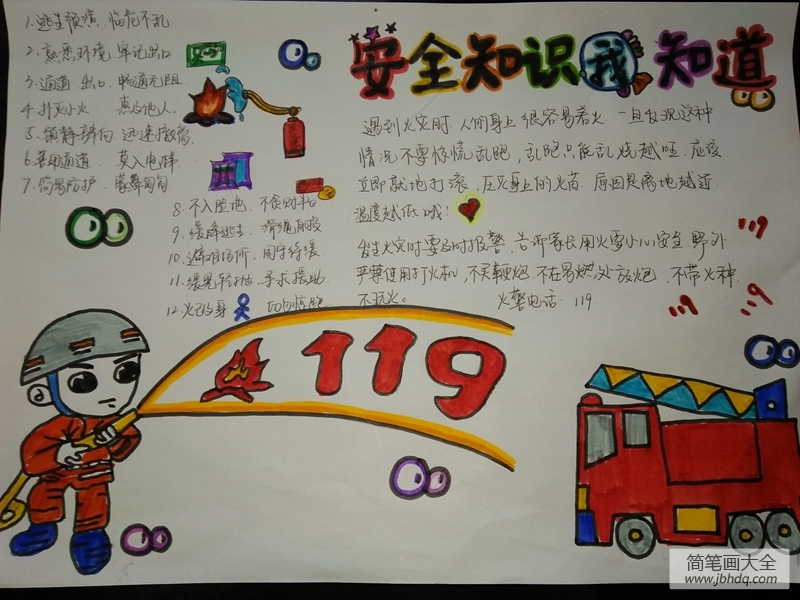 安全知识我知道
1.逃生预演，临危不乱
2.熟悉环境，牢记出口
3.通道 出口，畅通无阻
4.扑灭小火 惠及他人
5.镇静辨向 迅速撤离
6.善用通道 莫入电梯
7.简易防护 蒙鼻匍匐
8.不入险地，不贪财物
9.缓降逃生，滑绳自救
10.避难场所，固守待援
11.缓晃轻抛，寻求援助
12.火已及身 切勿惊跑
遇到火灾时，人们身上很容易着火 一旦发现这种
情况不要惊慌乱跑，乱跑只能乱烧越旺，应该
立即就地打滚，压灭身上的火苗，原因是离地越近
温度越低哦！
发生火灾时要及时报警，告诉家长用火要小心安全 野外
严禁使用打火机，不买鞭炮 不在易燃处放炮，不带火种
不玩火。 火警电话：119
119
119
119
119
简笔画大全
www.jbhdq.com